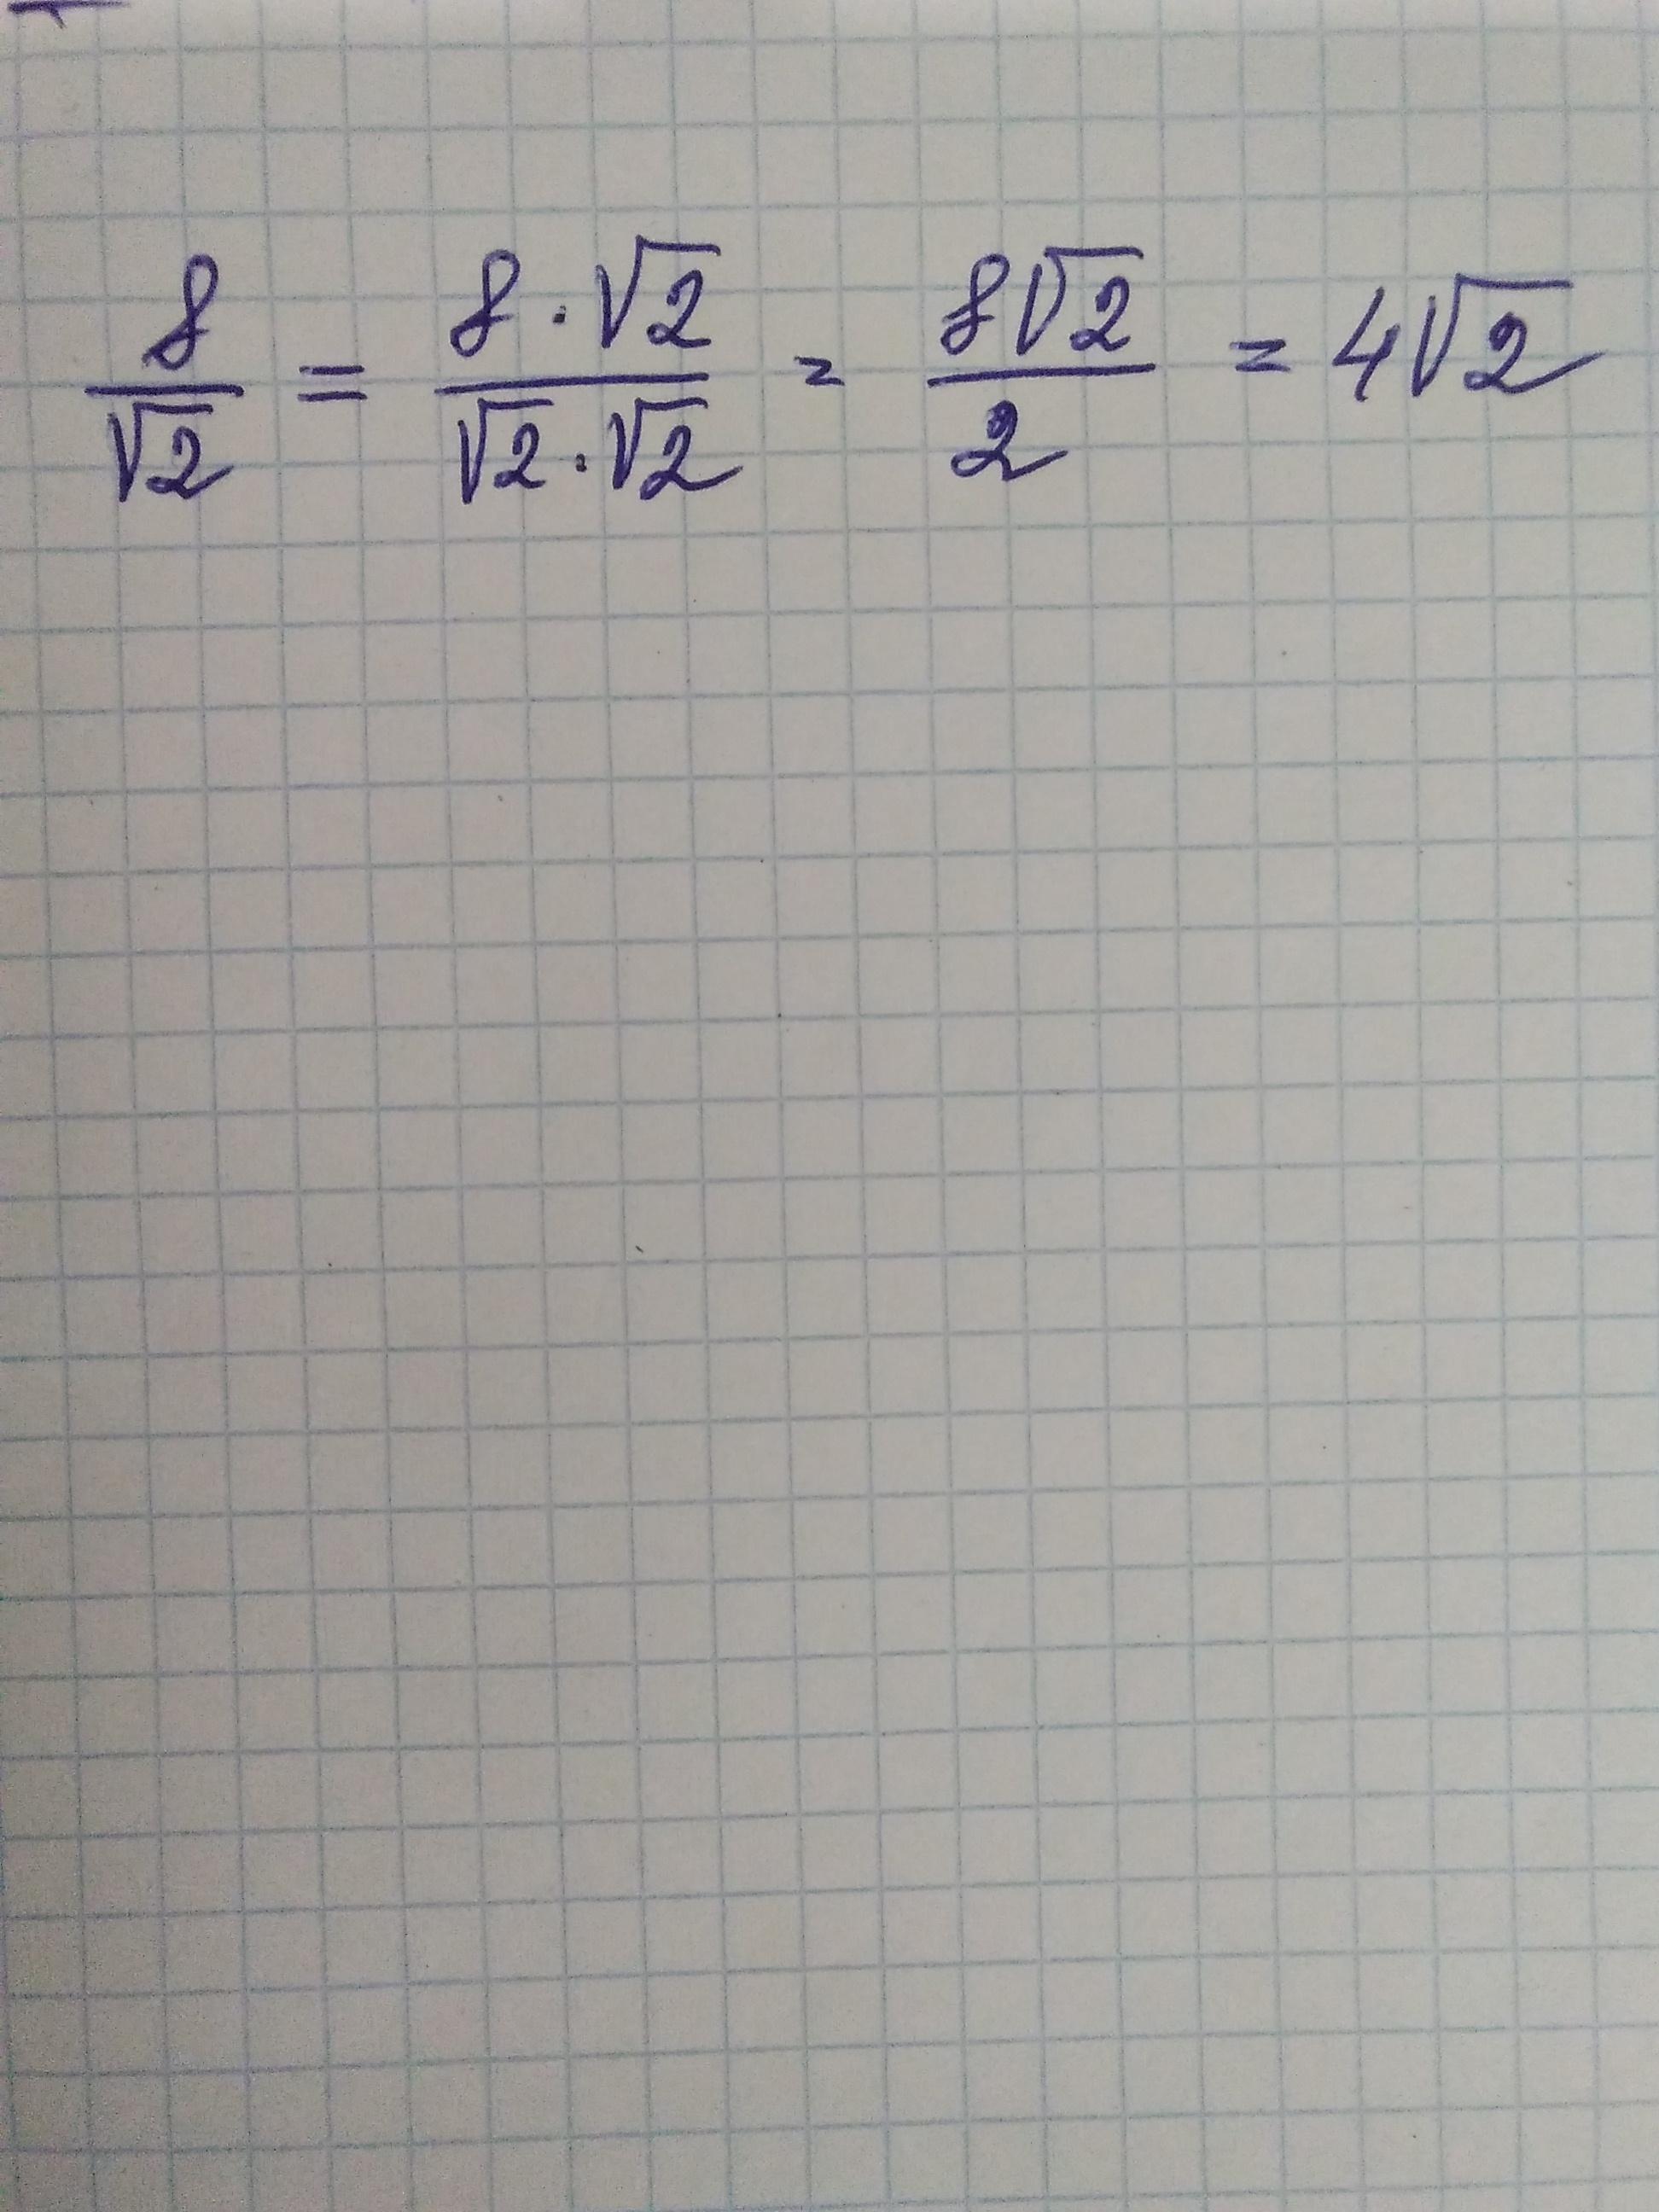 8/√2 = 8·√2/√2·√2 = 8√2/2 = 4√2